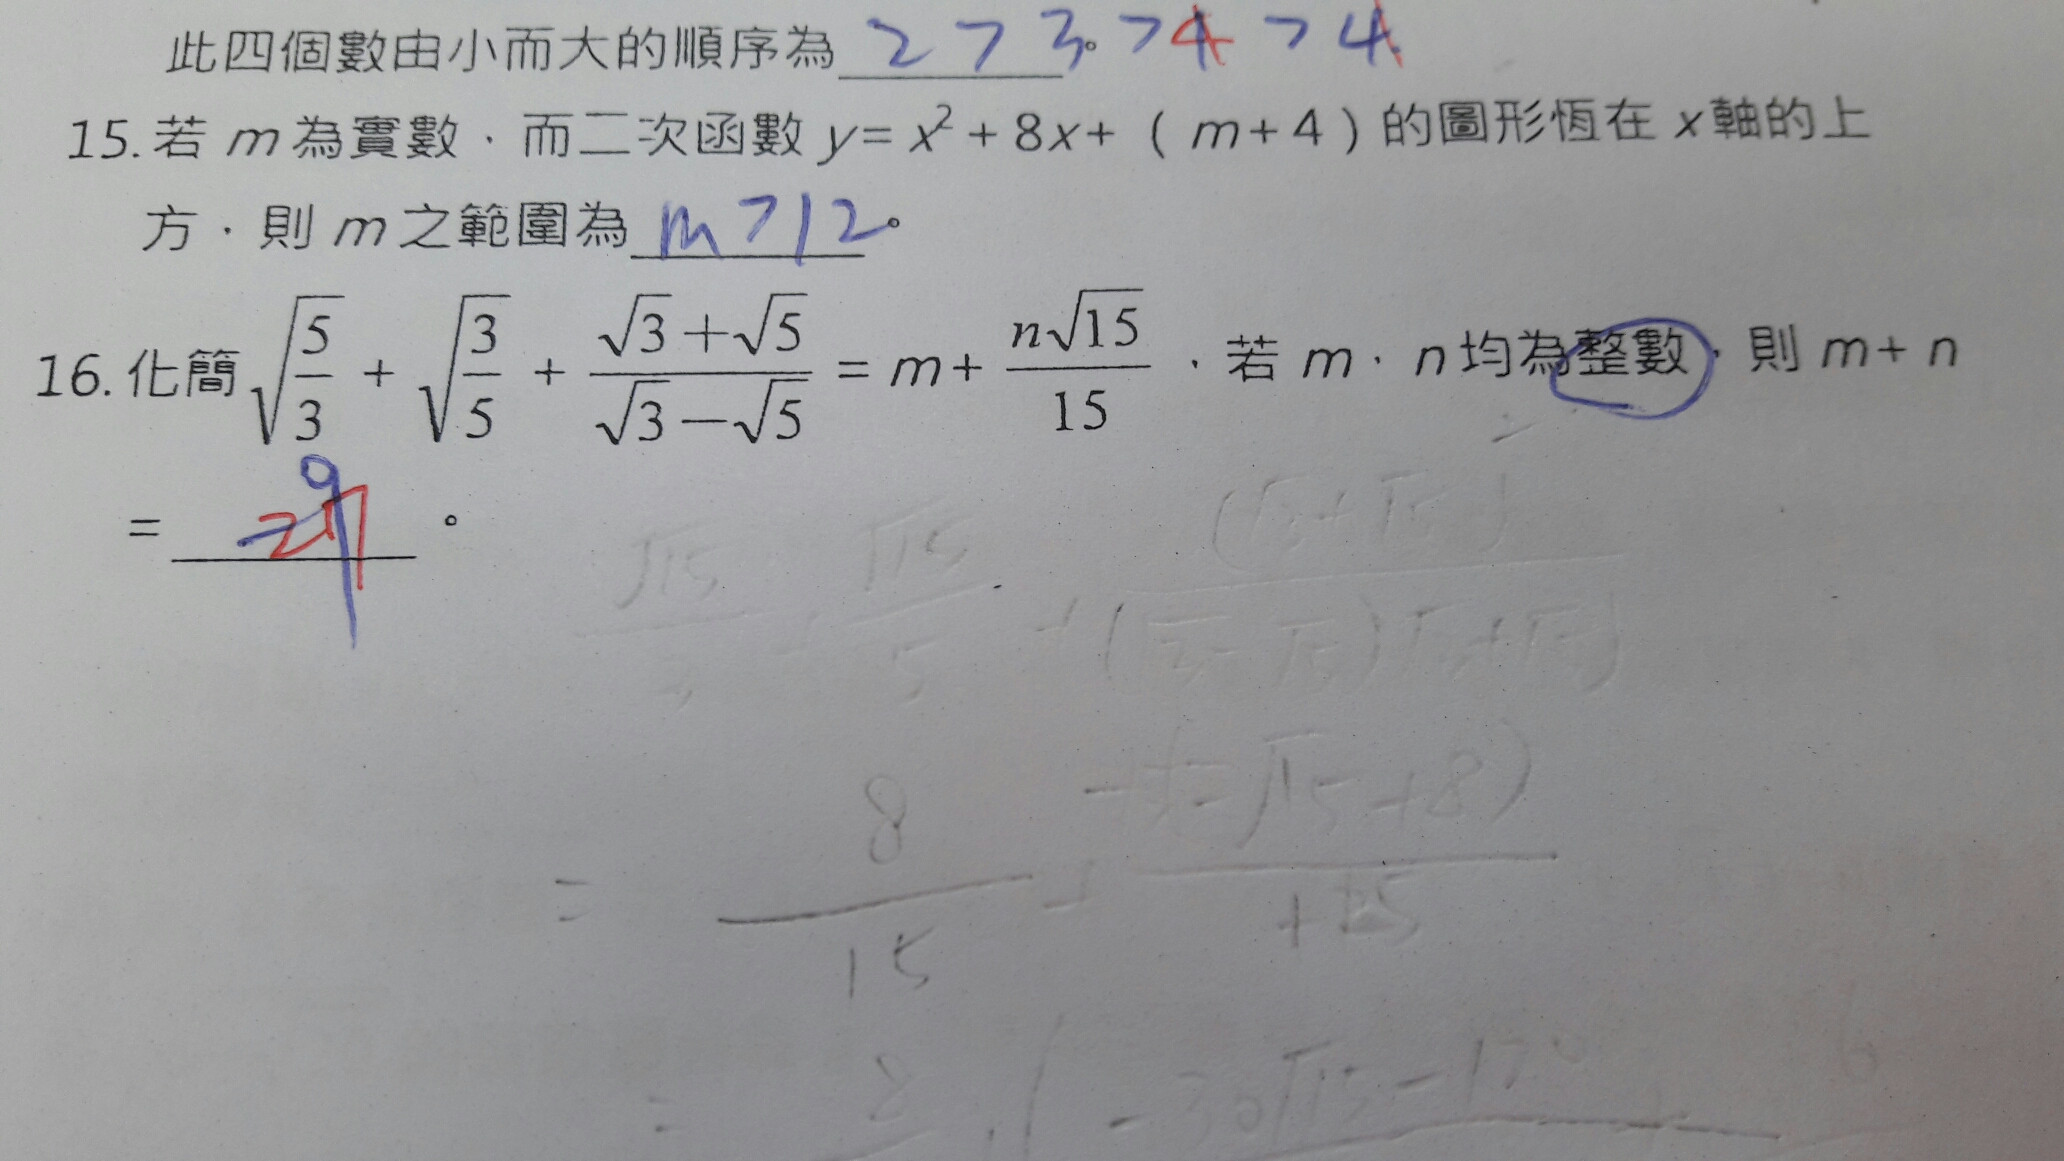 此四個數由小而大的順序為 2 > 3 > 4 > 4 。
15. 若 m 為實數，而二次函數 y = x² + 8x + （ m + 4 ）的圖形恆在 x 軸的上
方，則 m 之範圍為 m > 12 。
16. 化簡 √(5/3) + √(3/5) + (√3+√5)/(√3−√5) = m + n√15/15 ，若 m，n 均為整數，則 m + n
= 。
√15/3 + √15/5 + (√3+√5)/(√3-√5)(√3+√5)
= 8/15